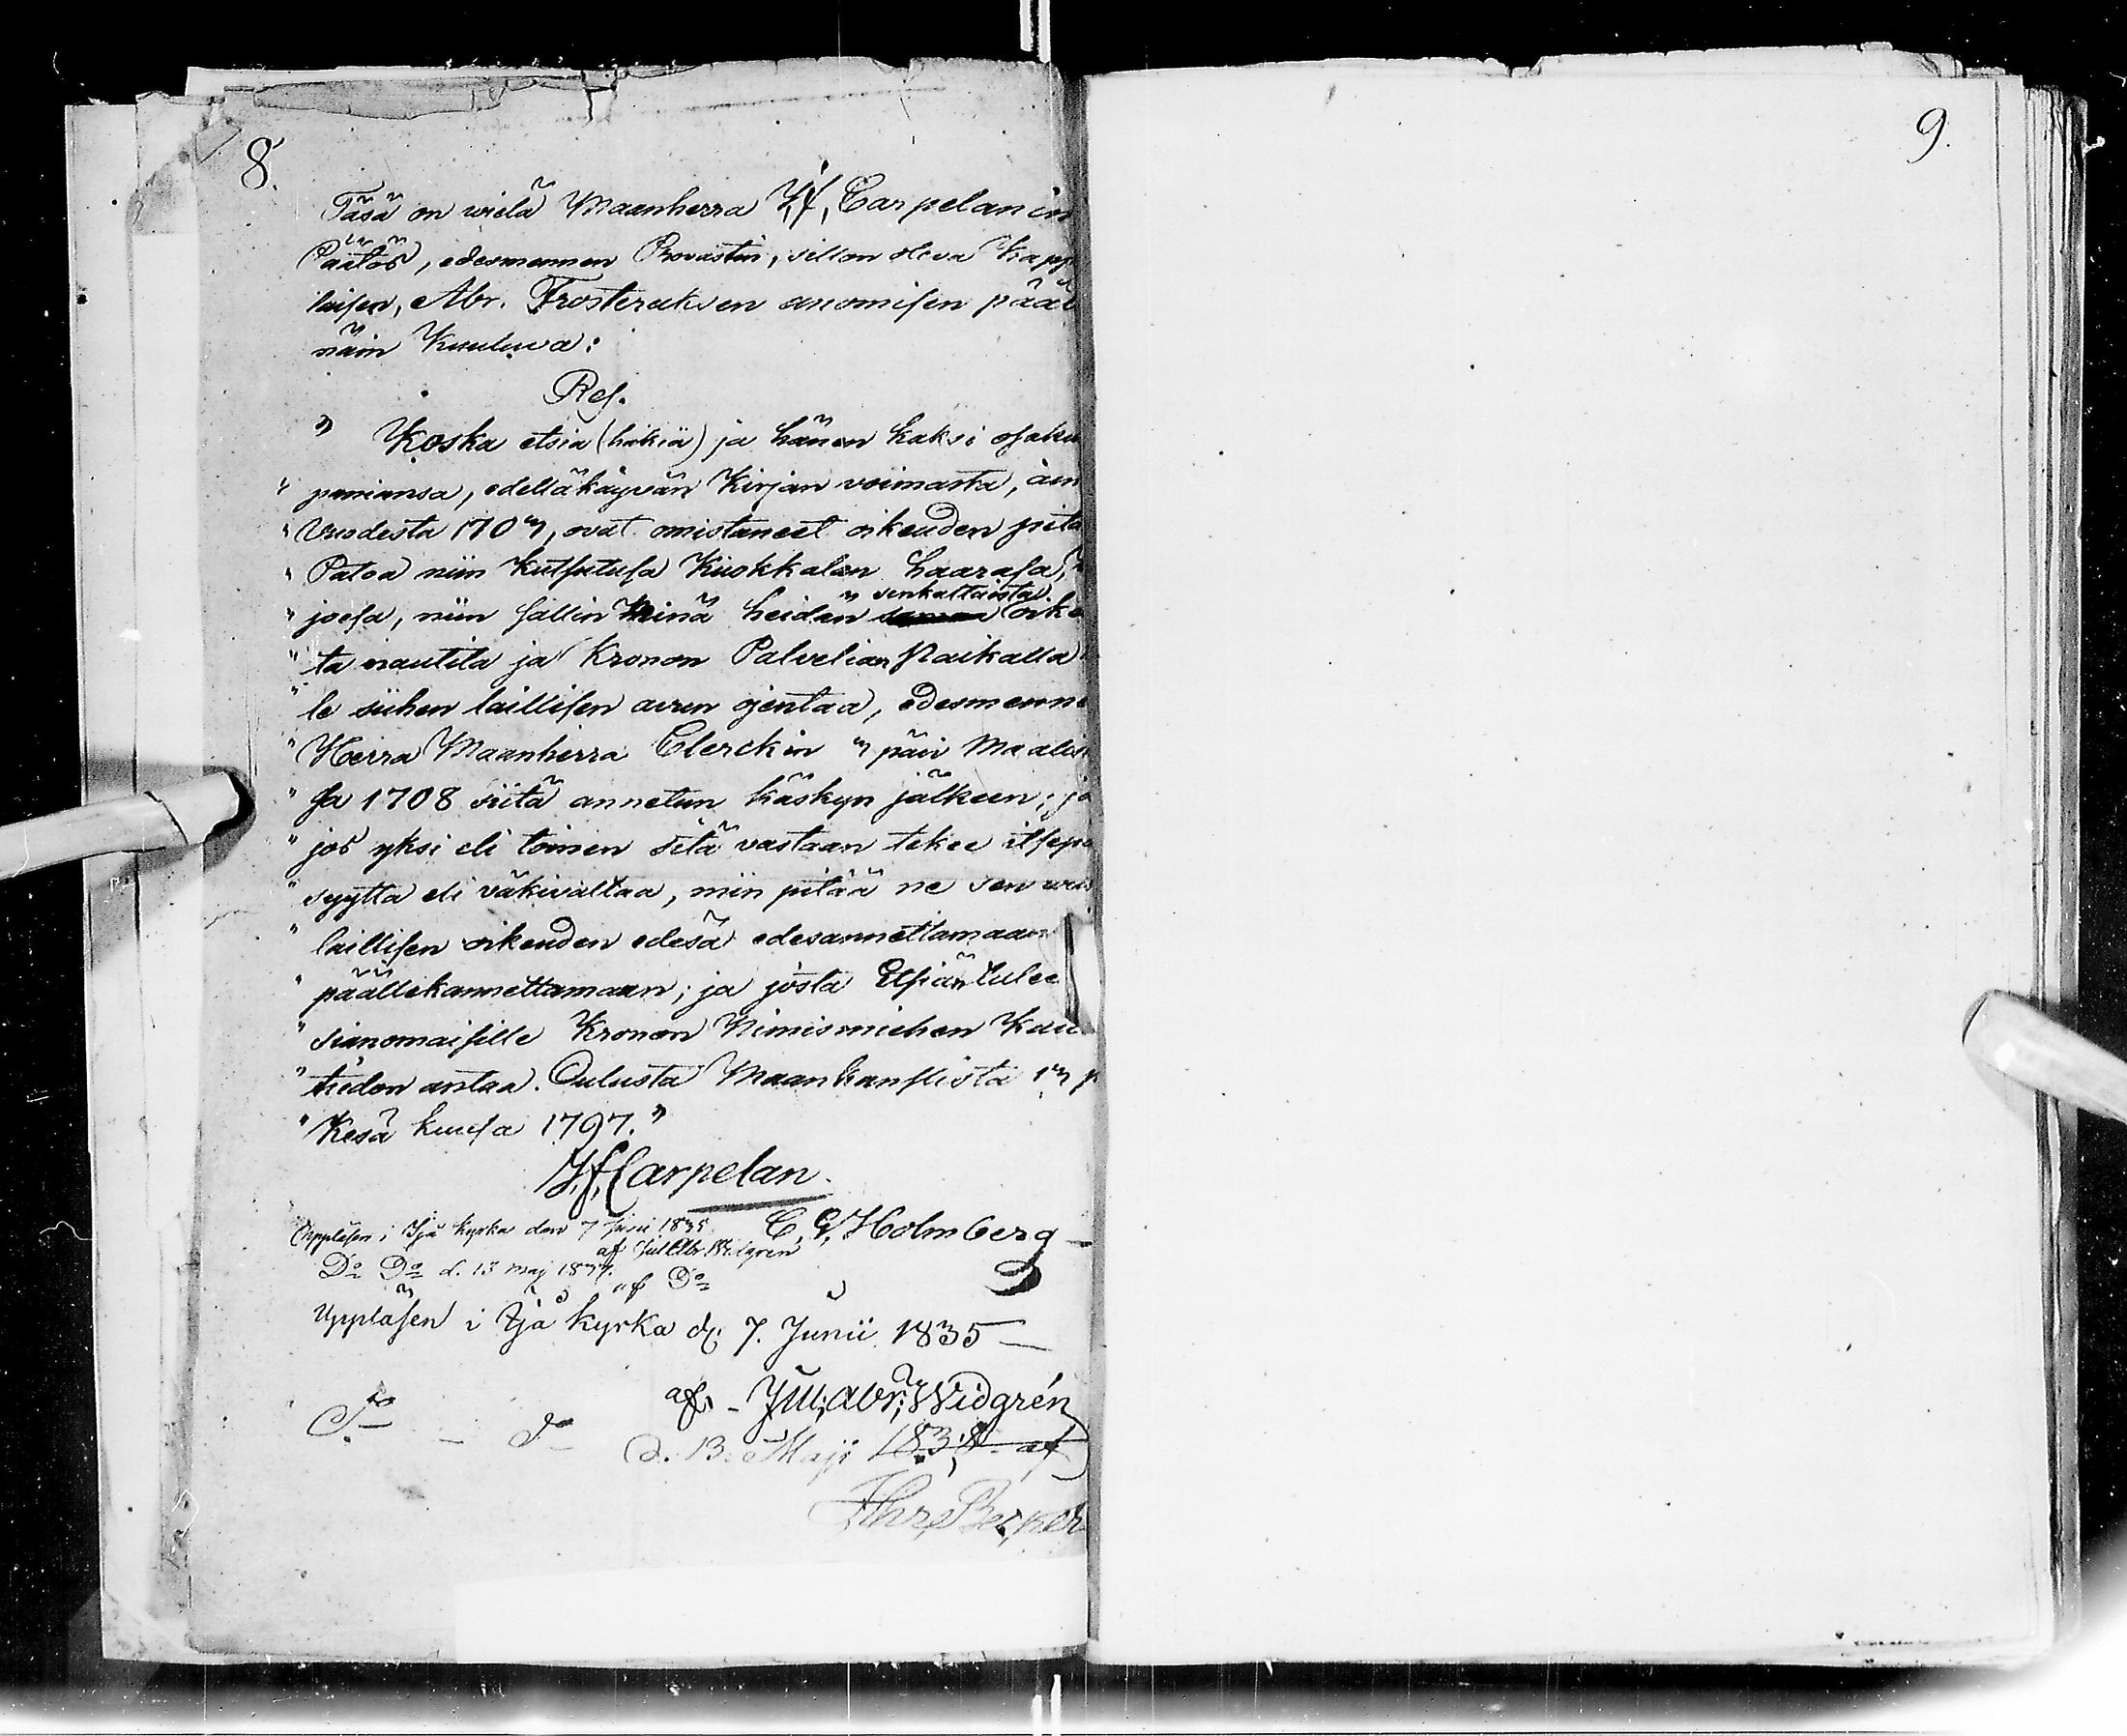 8.
9.
Täsä on wielä Maanherra J, F, Carpelanin
Päätös, edesmennen Provastin, sillon oleva Kapp
laisen, Abr. Frosteruksen anomisen pääl
näin Kuuluwa:
Res.
" Koska etsia (hakia) ja hänen kaksi osaku
" paniansa, edelläkäyvän Kirjan voimasta, ain
" Vuodesta 1707, ovat omistaneet oikeuden pitä
" Patoa niin kutsutusa Kuokkalan haarasa,
" joesa, niin sallin Minä heidän senkaltaista oike
" ta nautita ja Kronon Palvelian Paikalla
" le siihen laillisen avun ojentaa, edesmenne
" Herra Maanherra Clerckin 7 päiv Maalis
" sa 1708 siitä annetun käskyn jälkeen; ja
" jos yksi eli toinen sitä vastaan tekee itsepä
" syyttä eli väkivaltaa, niin pitää ne sen
" laillisen oikeuden edesä edesannettamaan
" päällekannettamaan; ja josta Etsiän tulee
" sianomaisille Kronon Nimismiehen Kau
" tiedon antaa. Oulusta Maankanslista 17 p
" Kesä kuusa 1797."
J, F, Carpelan.
Uppläsen i Ijå kyrka den 7 Junii 1835 C, G, Holmberg
af Jul Abr Widgren
Do Do d. 13 maj 1837.
af Do
Uppläsen i Ijå kyrka d. 7. Junii 1835 —
af - Jul; Abr; Widgrén
Do - do d. 13. Maji 1838 af